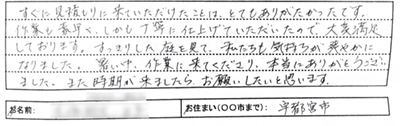 すぐに見積もりに来ていただけたことは、とてもありがたかったです。
作業も素早く、しかも丁寧に仕上げていただいたので、大変満足
しております。すっきりした庭を見て、私たちも気持ちが爽やかに
なりました。暑い中、作業に来てくださり、本当にありがとうござい
ました。また時期が来ましたら、お願いしたいと思います。
お名前: お住まい(〇〇市まで): 宇都宮市